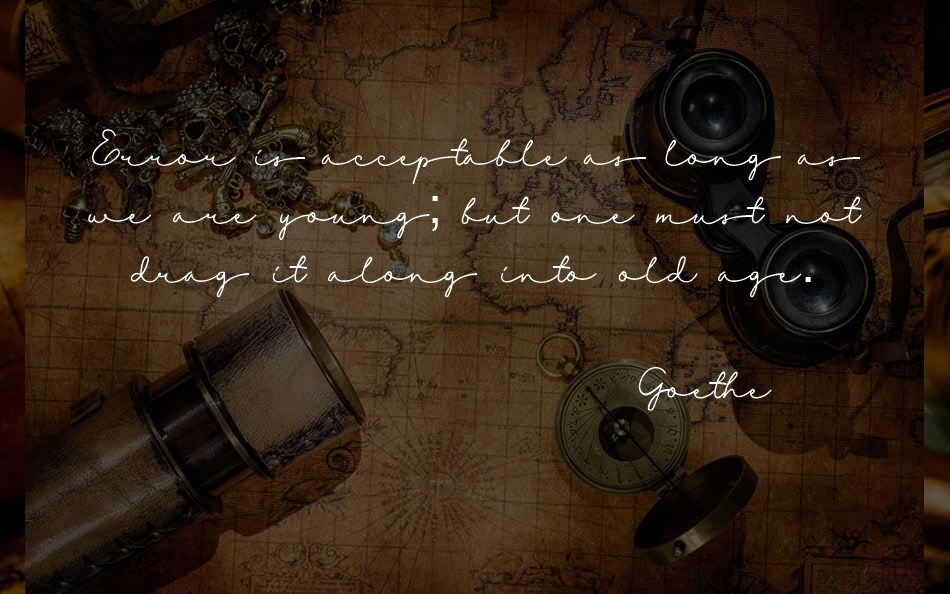 Error is acceptable as long as
we are young; but one must not
drag it along into old age.
Goethe